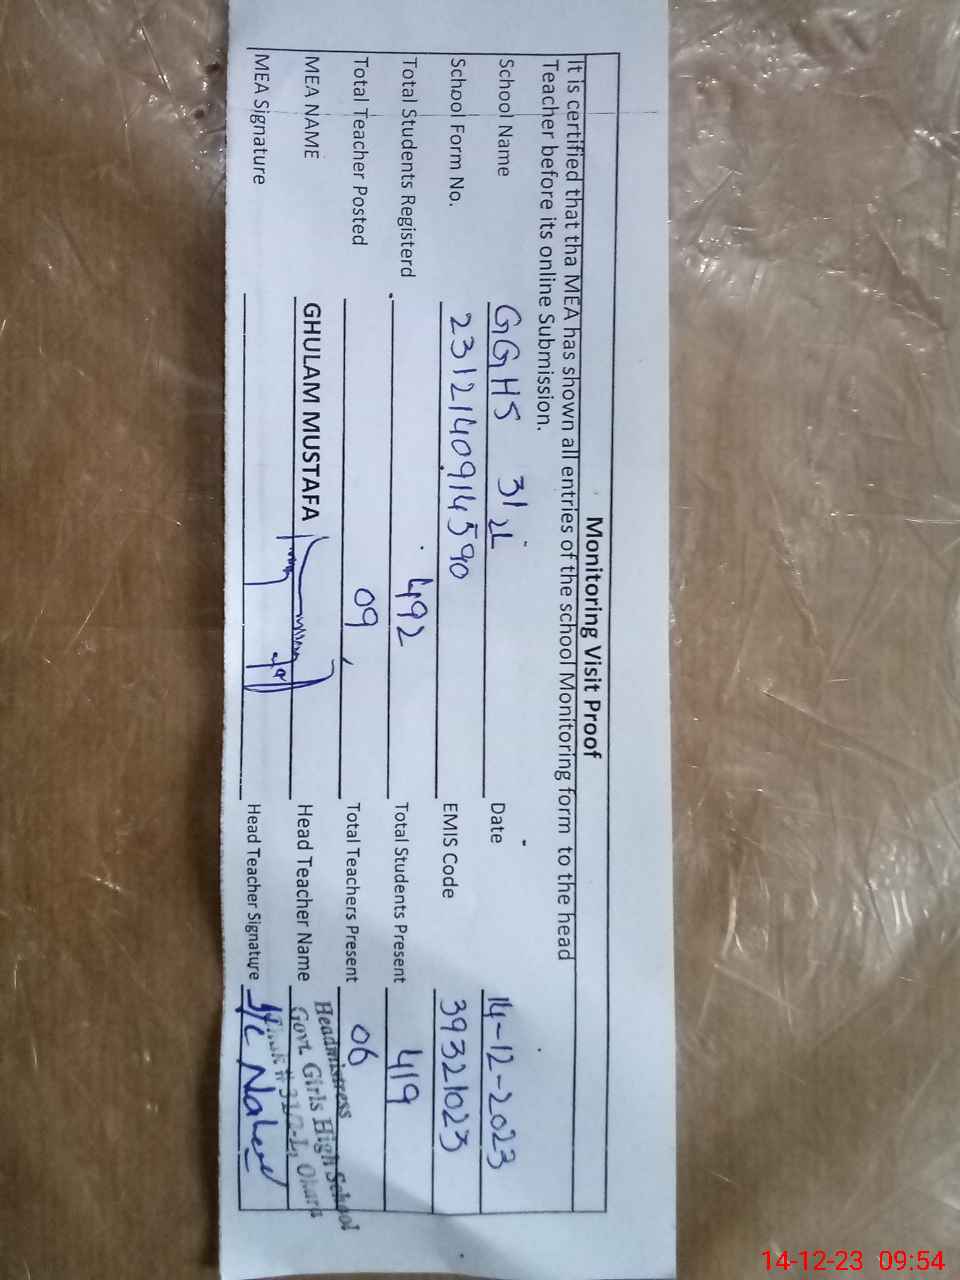 Monitoring Visit Proof
It Is certified that tha MEA has shown all entries of the school Monitoring form to the head
Teacher before its online Submission.
School Name GGHS 31 2L Date 14-12-2023
School Form No. 2312140914590 EMIS Code 39321023
Total Students Registerd 492 Total Students Present 419
Total Teacher Posted 09 Total Teachers Present 06
MEA NAME GHULAM MUSTAFA Head Teacher Name
Headmistress
Govt. Girls High School
MEA Signature Head Teacher Signature
14-12-23 09:54